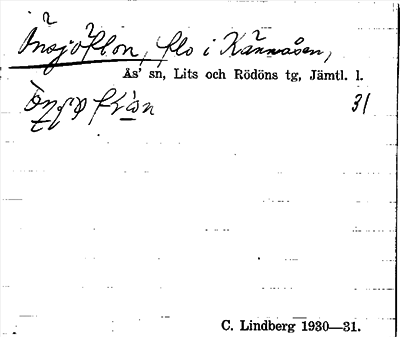 Önsjöflon, flo i Kännåsen,
Ås' sn, Lits och Rödöns tg, Jämtl. l.
31
C. Lindberg 1930—31.